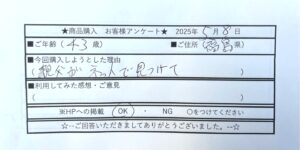 ★商品購入 お客様アンケート★ 2025年5月8日
■ご年齢(43歳) ■ご住所(福島県)
■今回購入しようとした理由
(親分がネットで見つけて)
■利用してみた感想・ご意見
( )
※HPへの掲載 OK ・ NG ○をつけてください
☆…ご回答いただきましてありがとうございました。…☆